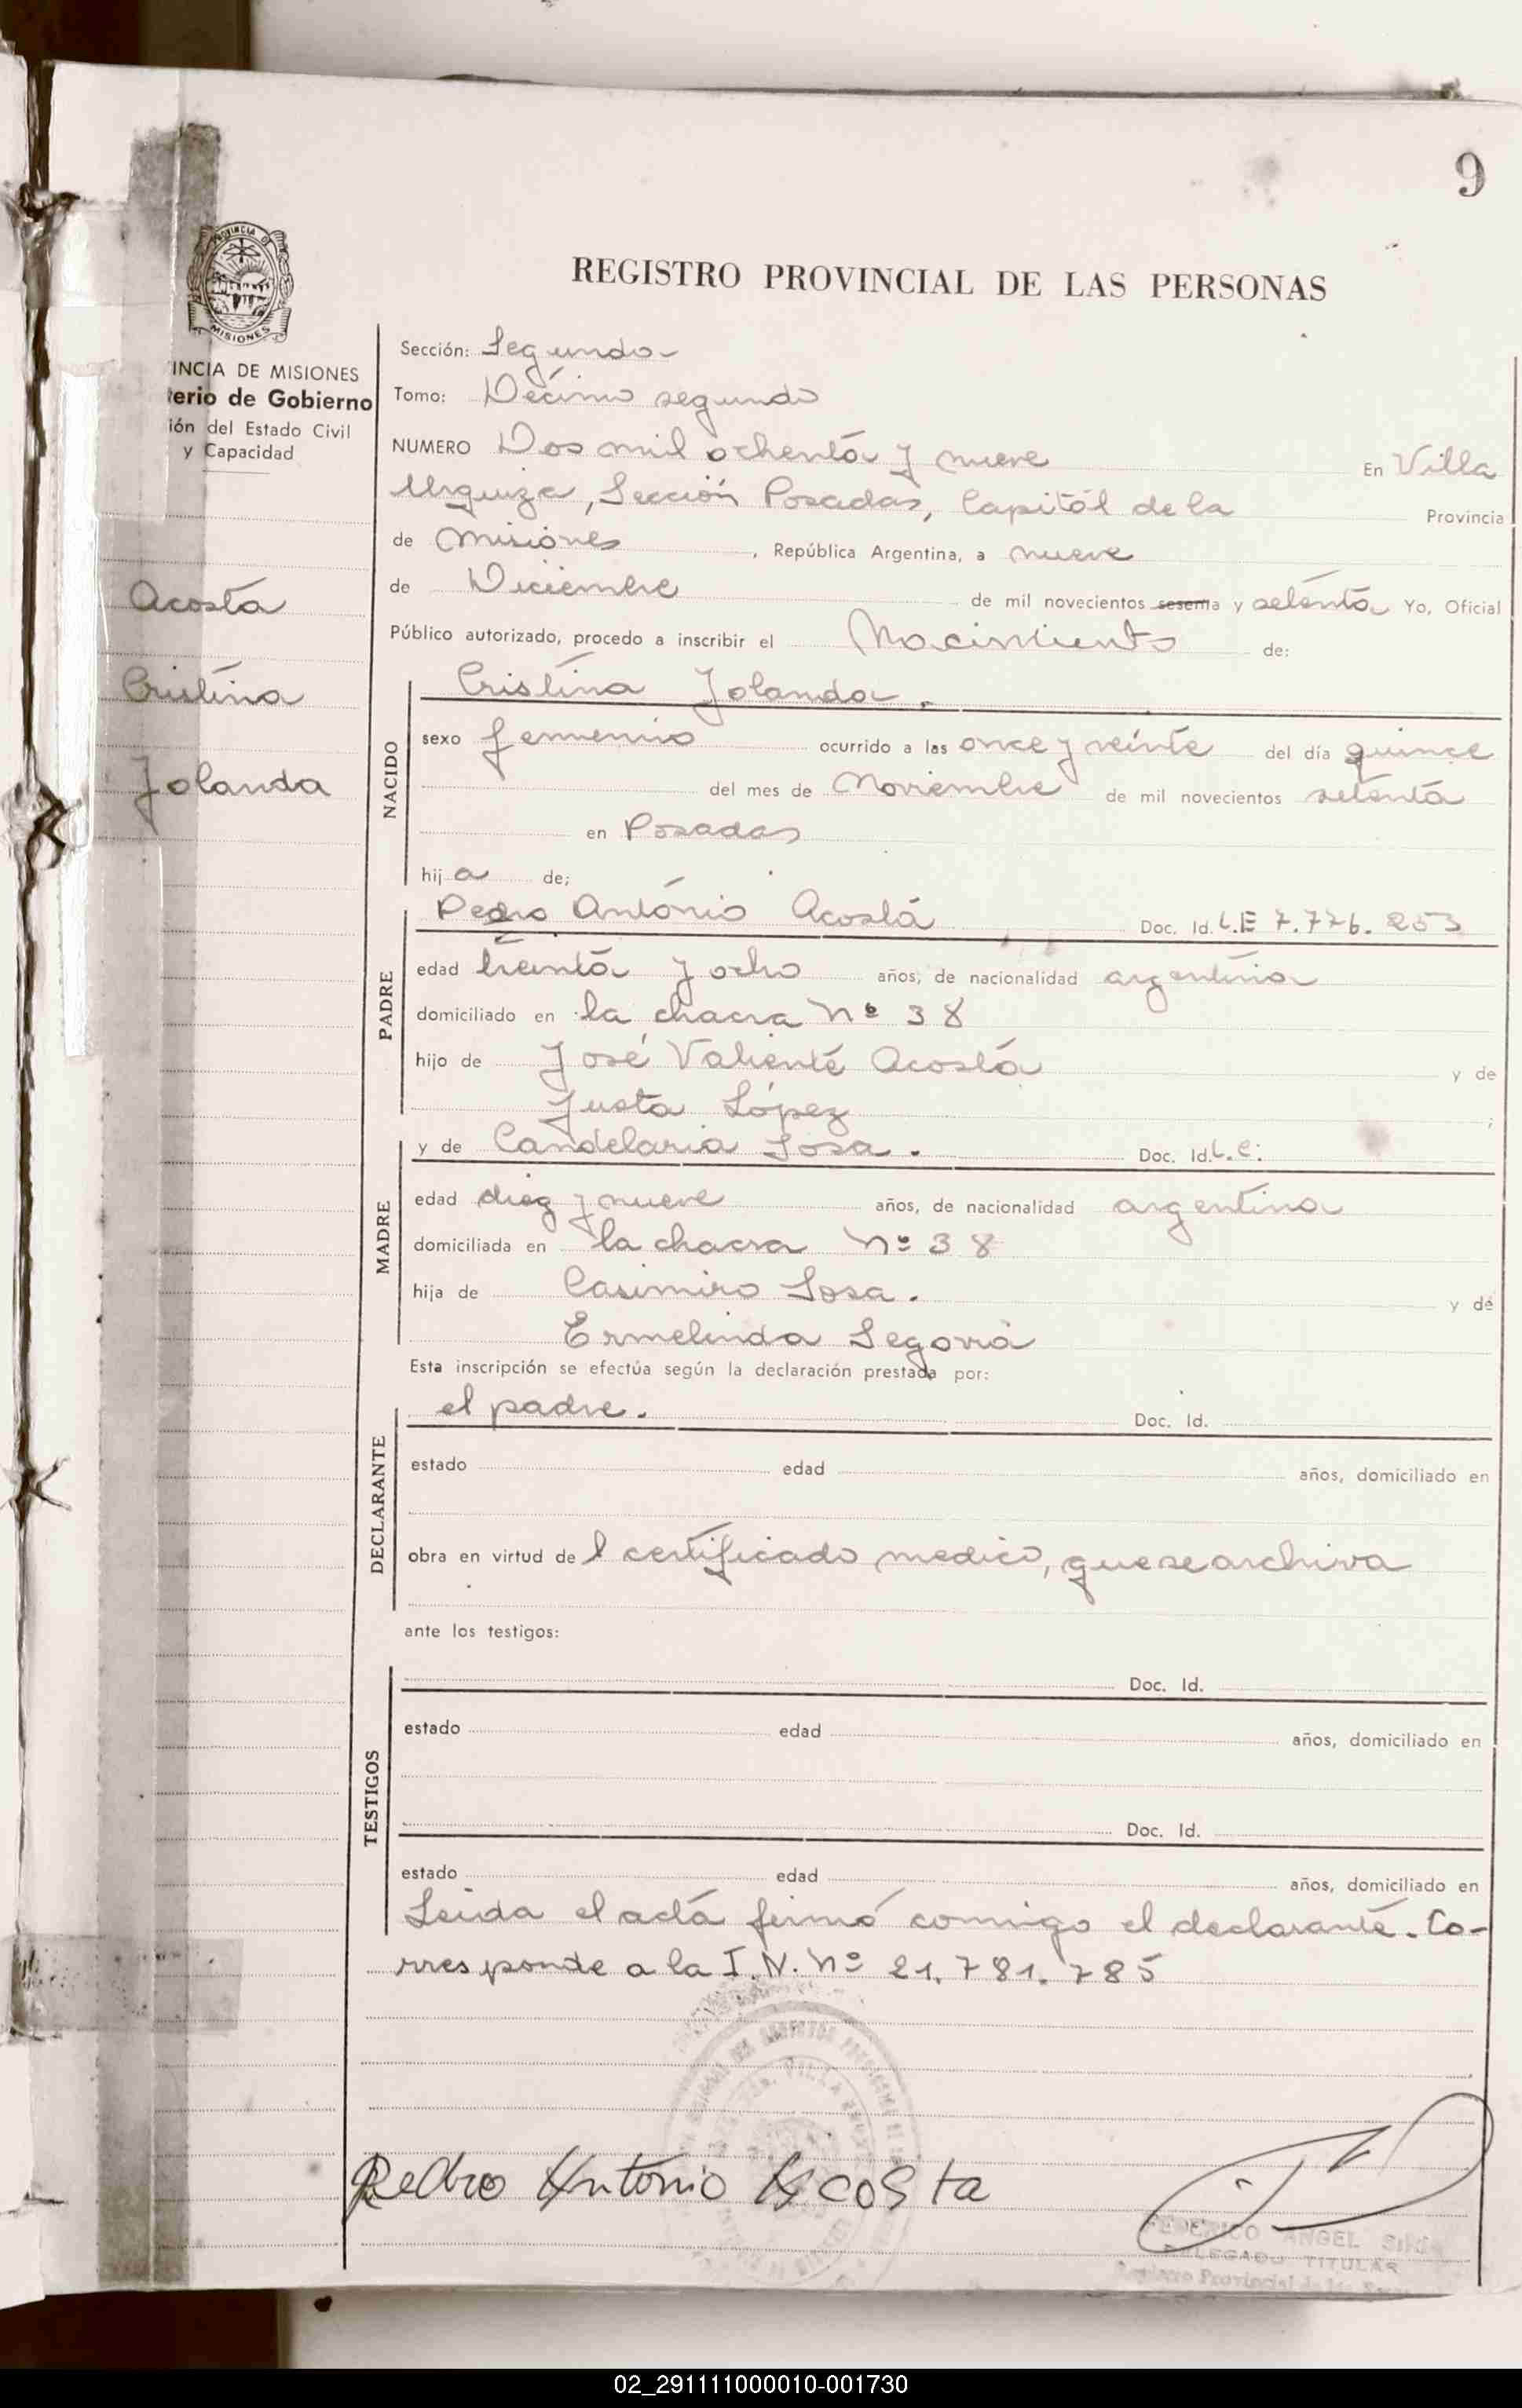 9
REGISTRO PROVINCIAL DE LAS PERSONAS
PROVINCIA DE
MISIONES
INCIA DE MISIONES
erio de Gobierno
ión del Estado Civil
y Capacidad
Acosta
Cristina
Jolanda
Sección: Segunda
Tomo: Décimo segundo
NUMERO Dos mil ochenta y nueve En Villa
Urquiza, Sección Posadas, Capital de la Provincia
de Misiones, República Argentina, a nueve
de Diciembre de mil novecientos sesenta y setenta Yo, Oficial
Público autorizado, procedo a inscribir el Nacimiento de:
NACIDO
Cristina Jolanda.
sexo femenino ocurrido a las once y veinte del día quince
del mes de Noviembre de mil novecientos setenta
en Posadas
hij a de;
PADRE
Pedro Antonio Acosta Doc. Id. L.E 7.776.253
edad treinta y ocho años, de nacionalidad argentina
domiciliado en la chacra Nº 38
hijo de José Valiente Acosta y de
Justa López ;
MADRE
y de Candelaria Sosa. Doc. Id. L.C:
edad diez y nueve años, de nacionalidad argentina
domiciliada en la chacra Nº 38
hija de Casimiro Sosa. y de
Ermelinda Segovia
Esta inscripción se efectúa según la declaración prestada por:
DECLARANTE
el padre. Doc. Id.
estado edad años, domiciliado en
obra en virtud de l certificado medico, que se archiva
ante los testigos:
TESTIGOS
Doc. Id.
estado edad años, domiciliado en
Doc. Id.
estado edad años, domiciliado en
Leida el acta firmó comigo el declarante. Co-
rresponde a la I.N. Nº 21.781.785
Pedro Antonio Acosta
FEDERICO ANGEL
DELEGADO TITULAR
Registro Provincial de las
02_291111000010-001730